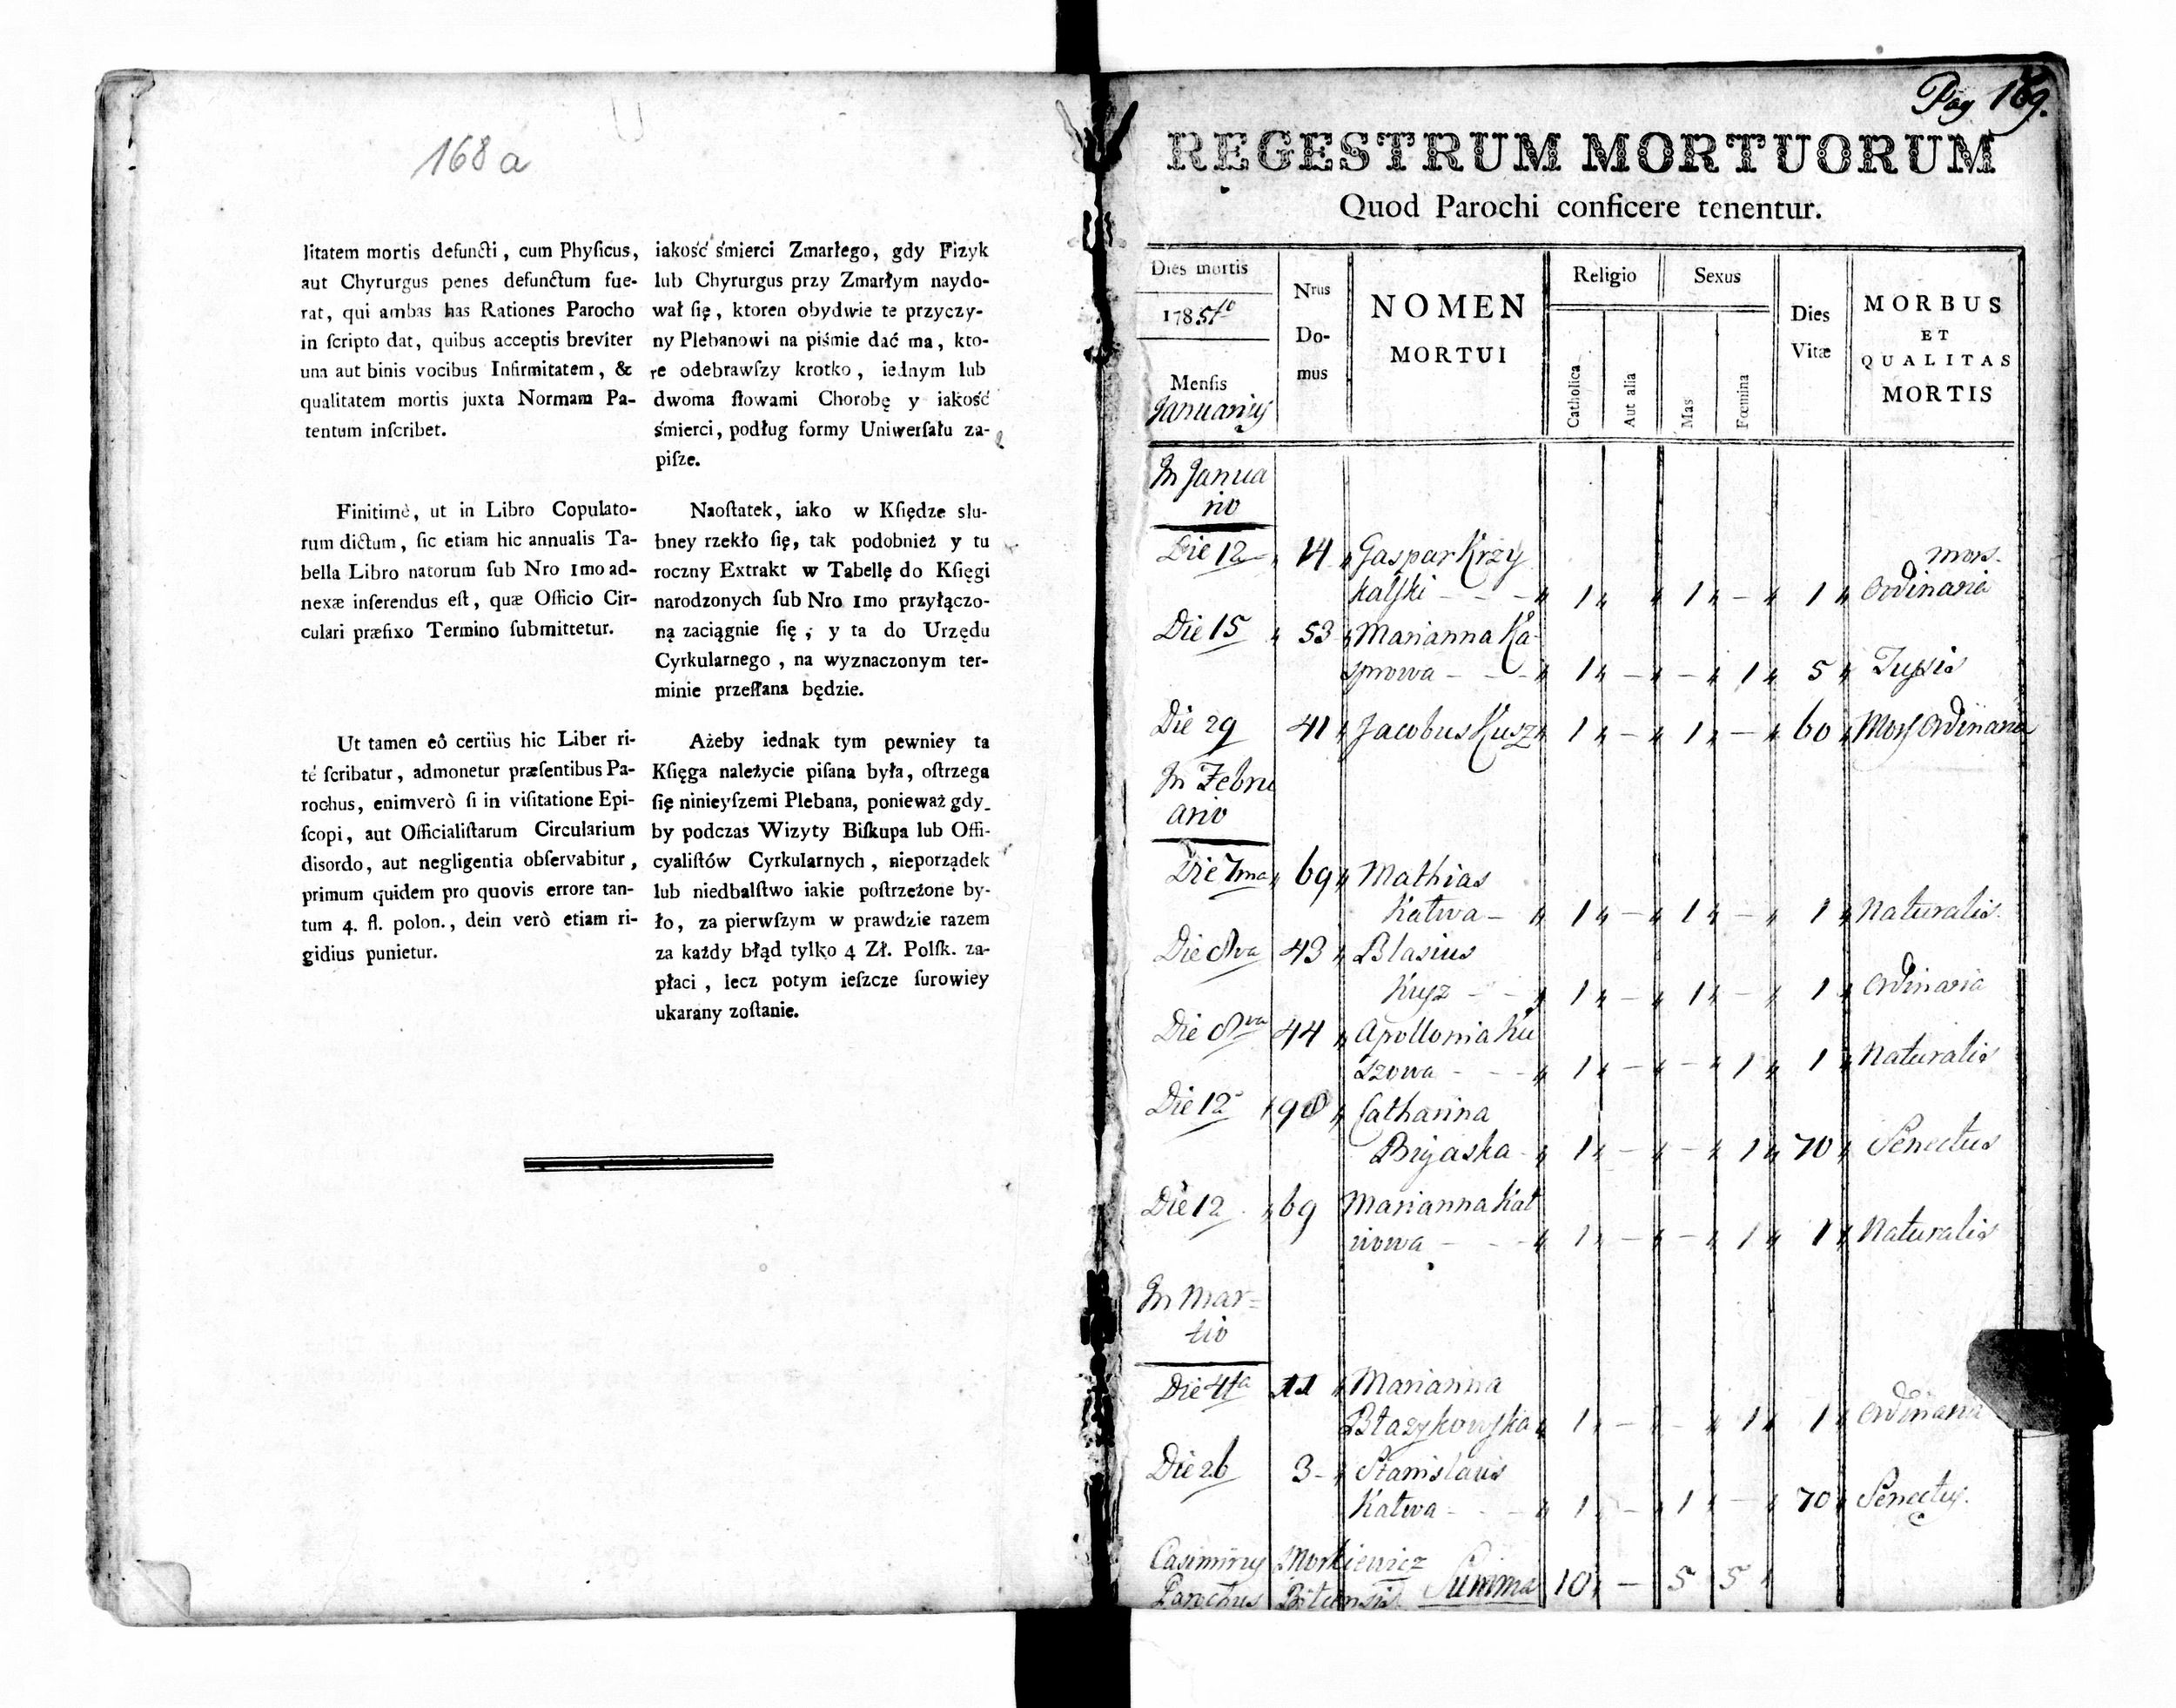 168 a
litatem mortis defuncti, cum Phyſicus,
aut Chyrurgus penes defunctum fue-
rat, qui ambas has Rationes Parocho
in ſcripto dat, quibus acceptis breviter
una aut binis vocibus Infirmitatem, &
qualitatem mortis juxta Normam Pa-
tentum inſcribet.
Finitimè, ut in Libro Copulato-
rum dictum, ſic etiam hic annualis Ta-
bella Libro natorum ſub Nro 1mo ad-
nexæ inſerendus eſt, quæ Officio Cir-
culari præfixo Termino ſubmittetur.
Ut tamen eô certiùs hic Liber ri-
té ſcribatur, admonetur præſentibus Pa-
rochus, enimverò ſi in viſitatione Epi-
ſcopi, aut Officialiſtarum Circularium
disordo, aut negligentia obſervabitur,
primum quidem pro quovis errore tan-
tum 4. fl. polon., dein verò etiam ri-
gidius punietur.
iakość śmierci Zmarłego, gdy Fizyk
lub Chyrurgus przy Zmarłym naydo-
wał ſię, ktoren obydwie te przyczy-
ny Plebanowi na piśmie dać ma, kto-
re odebrawſzy krotko, iednym lub
dwoma ſłowami Chorobę y iakość
śmierci, podług formy Uniwerſału za-
piſze.
Naoſtatek, iako w Kſiędze slu-
bney rzekło ſię, tak podobnież y tu
roczny Extrakt w Tabellę do Kſięgi
narodzonych ſub Nro 1mo przyłączo-
ną zaciągnie ſię, y ta do Urzędu
Cyrkularnego, na wyznaczonym ter-
minie przeſłana będzie.
Ażeby iednak tym pewniey ta
Kſięga należycie piſana była, oſtrzega
ſię ninieyſzemi Plebana, ponieważ gdy-
by podczas Wizyty Biſkupa lub Offi-
cyaliſtów Cyrkularnych, nieporządek
lub niedbalſtwo iakie poſtrzeżone by-
ło, za pierwſzym w prawdzie razem
za każdy błąd tylko 4 Zł. Polſk. za-
płaci, lecz potym ieſzcze ſurowiey
ukarany zoſtanie.
Pag 169.
REGESTRUM MORTUORUM
Quod Parochi conficere tenentur.
Dies mortis
1785to
Menſis
Januarius
Nrus
Do-
mus
NOMEN
MORTUI
Religio
Catholica
Aut alia
Sexus
Mas
Fœmina
Dies
Vitæ
MORBUS
ET
QUALITAS
MORTIS
In Janua
rio
Die 12 14 Gaspar Krzy mors.
kalſki - - - 1 1 - 1 Ordinaria
Die 15 53 Marianna Ka-
sprowa - - - 1 - - 1 5 Tuſsis
Die 29 41 Jacobus Kusz 1 - 1 - 60 Mors Ordinaria
In Febru
ario
Die 7ma 69 Mathias
Katwa - 1 - 1 - 1 Naturalis.
Die 8va 43 Blasius
Kuſz - - 1 - 1 - 1 Ordinaria
Die 8va 44 Apollonia Ku
szowa - - - 1 - - 1 1 Naturalis
Die 12 98 Catharina
Brygaska - 1 - - 1 70 Senectus
Die 12 69 Marianna Kat
wowa - - - 1 - - 1 1 Naturalis
In Mar=
tio
Die 4ta 11 Marianna
Błazykowſka 1 - - 1 1 Ordinaria
Die 26 3 - Stanislaus
Katwa - - - 1 - 1 - 70 Senectus.
Casimirus Morkiewicz Summa 10 - 5 5
Parochus